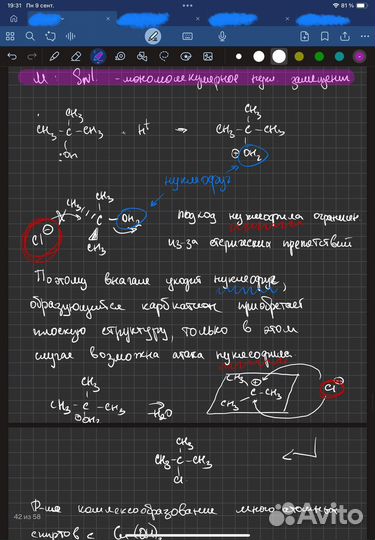 19:31 Пн 9 сент.
81 %
М. SN1. - мономолекулярное нукл замещение
CH₃
CH₃-C-CH₃ + H⁺ → CH₃-C-CH₃
:OH
CH₃
⊕ OH₂
нуклеофуг
CH₃
Cl ⊖
C
OH₂
CH₃
CH₃
подход нуклеофила ограничен
из-за стерических препятствий
Поэтому вначале уходит нуклеофуг,
образующийся карбкатион приобретает
плоскую структуру, только в этом
случае возможна атака нуклеофила
CH₃
CH₃-C-CH₃
⊕OH₂
-H₂O
CH₃ ⊕
C-CH₃
CH₃
Cl ⊖
CH₃
CH₃-C-CH₃
Cl
42 из 58
Р-ия комплексообразование многоатомных
спиртов с Cu(OH)₂
Avito